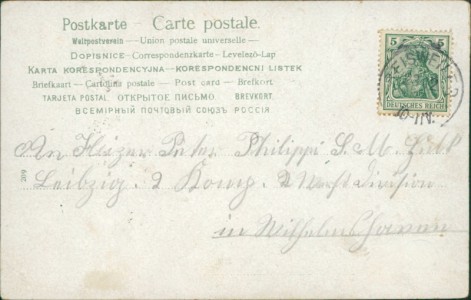 Postkarte – Carte postale.
Weltpostverein – Union postale universelle –
DOPISNICE – Correspondenzkarte – Levelező-Lap
KARTA KORESPONDENCYJNA – KORESPONDENCNI LISTEK
Briefkaart – Cartolina postale – Post card – Brefkort
TARJETA POSTAL ОТКРЫТОЕ ПИСЬМО. BREVKORT.
ВСЕМІРНЫЙ ПОЧТОВЫЙ СОЮЗЪ РОССІЯ
5 5
DEUTSCHES REICH
An Heizer Peter Philippi S. M. Schff
Leibzig. 2 Komp. 2 Werft Division
in Wilhelmshaven
209